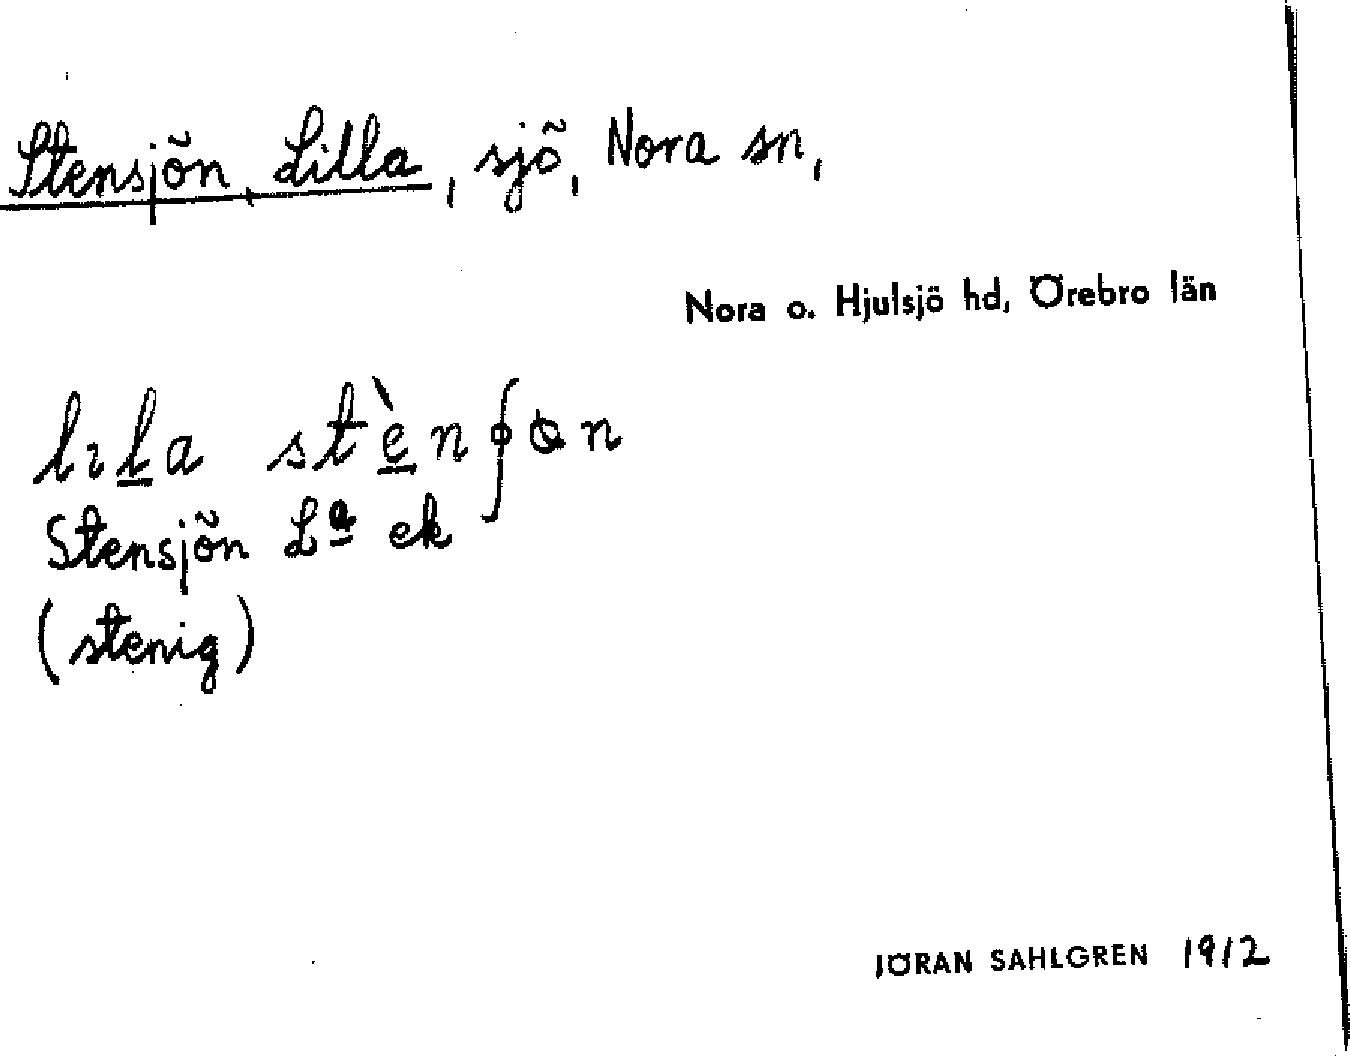 Stensjön, Lilla, sjö, Nora sn,
Nora o. Hjulsjö hd, Örebro län
lɪla stèn
Stensjön Lª ek
(stenig)
JÖRAN SAHLGREN 1912